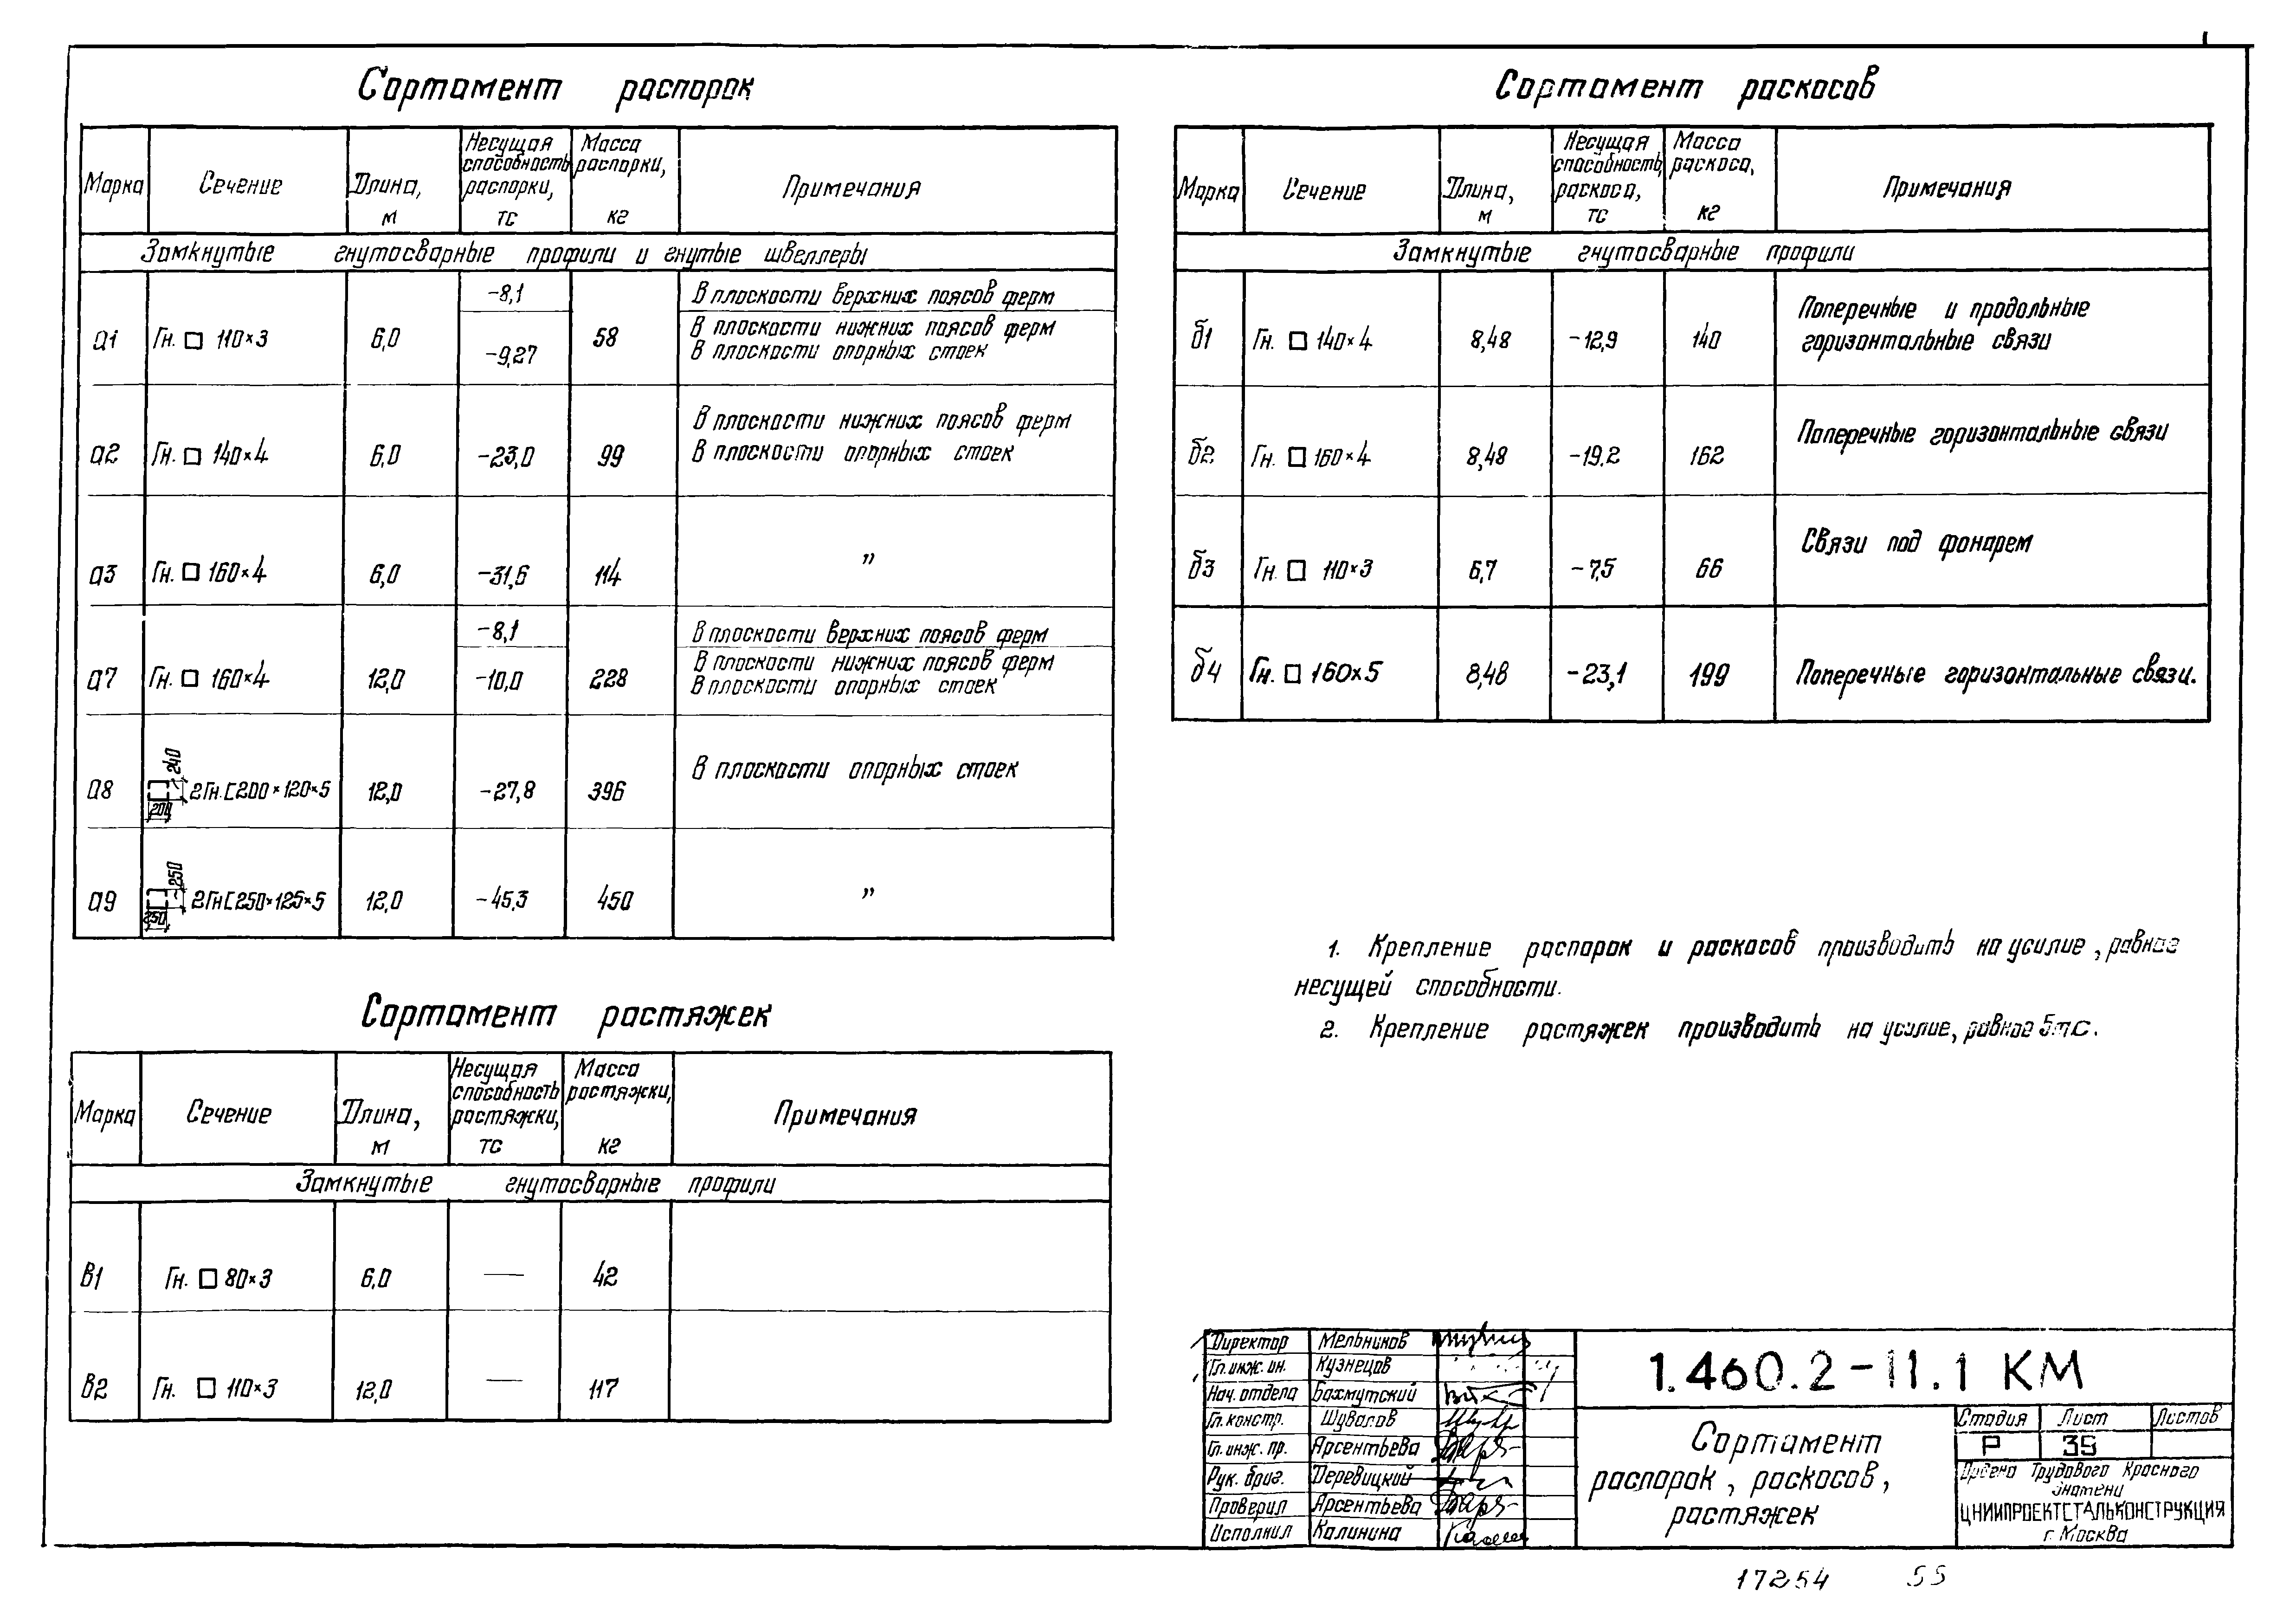 Сортамент распорок
Марка Сечение Длина, м Несущая способность распорки, тс Масса распорки, кг Примечания
Замкнутые гнутосварные профили и гнутые швеллеры
а1 Гн. □ 110×3 6,0 -8,1 58 В плоскости верхних поясов ферм
-9,27 В плоскости нижних поясов ферм
В плоскости опорных стоек
а2 Гн. □ 140×4 6,0 -23,0 99 В плоскости нижних поясов ферм
В плоскости опорных стоек
а3 Гн. □ 160×4 6,0 -31,6 114 "
а7 Гн. □ 160×4 12,0 -8,1 228 В плоскости верхних поясов ферм
-10,0 В плоскости нижних поясов ферм
В плоскости опорных стоек
а8 240 200 2Гн.[200×120×5 12,0 -27,8 396 В плоскости опорных стоек
а9 250 250 2Гн[250×125×5 12,0 -45,3 450 "
Сортамент растяжек
Марка Сечение Длина, м Несущая способность растяжки, тс Масса растяжки, кг Примечания
Замкнутые гнутосварные профили
в1 Гн. □ 80×3 6,0 — 42
в2 Гн. □ 110×3 12,0 — 117
Сортамент раскосов
Марка Сечение Длина, м Несущая способность, раскоса, тс Масса раскоса, кг Примечания
Замкнутые гнутосварные профили
б1 Гн. □ 140×4 8,48 -12,9 140 Поперечные и продольные
горизонтальные связи
б2 Гн. □ 160×4 8,48 -19.2 162 Поперечные горизонтальные связи
б3 Гн. □ 110×3 6,7 -7,5 66 Связи под фонарем
б4 Гн. □ 160×5 8,48 -23,1 199 Поперечные горизонтальные связи.
1. Крепление распорок и раскосов производить на усилие, равное
несущей способности.
2. Крепление растяжек производить на усилие, равное 5тс.
Директор Мельников
Гл. инж. ин. Кузнецов
Нач. отдела Бахмутский
Гл. констр. Шувалов
Гл. инж. пр. Арсентьева
Рук. бриг. Деревицкий
Проверил Арсентьева
Исполнил Калинина
1.460.2-11.1 КМ
Сортамент
распорок, раскосов,
растяжек
Стадия Лист Листов
Р 35
Ордена Трудового Красного
Знамени
ЦНИИПРОЕКТСТАЛЬКОНСТРУКЦИЯ
г. Москва
17254 55